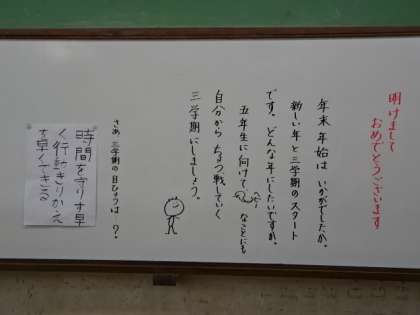 明けまして
おめでとうございます
年末年始は いかがでしたか。
新しい年と三学期のスタート
です。どんな年にしたいですか。
五年生に向けて なことにも
自分から ちょう戦していく
三学期にしましょう。
さあ 三学期の目ひょうは ?
時間を守り す早
く行動きりかえ
を早くできる